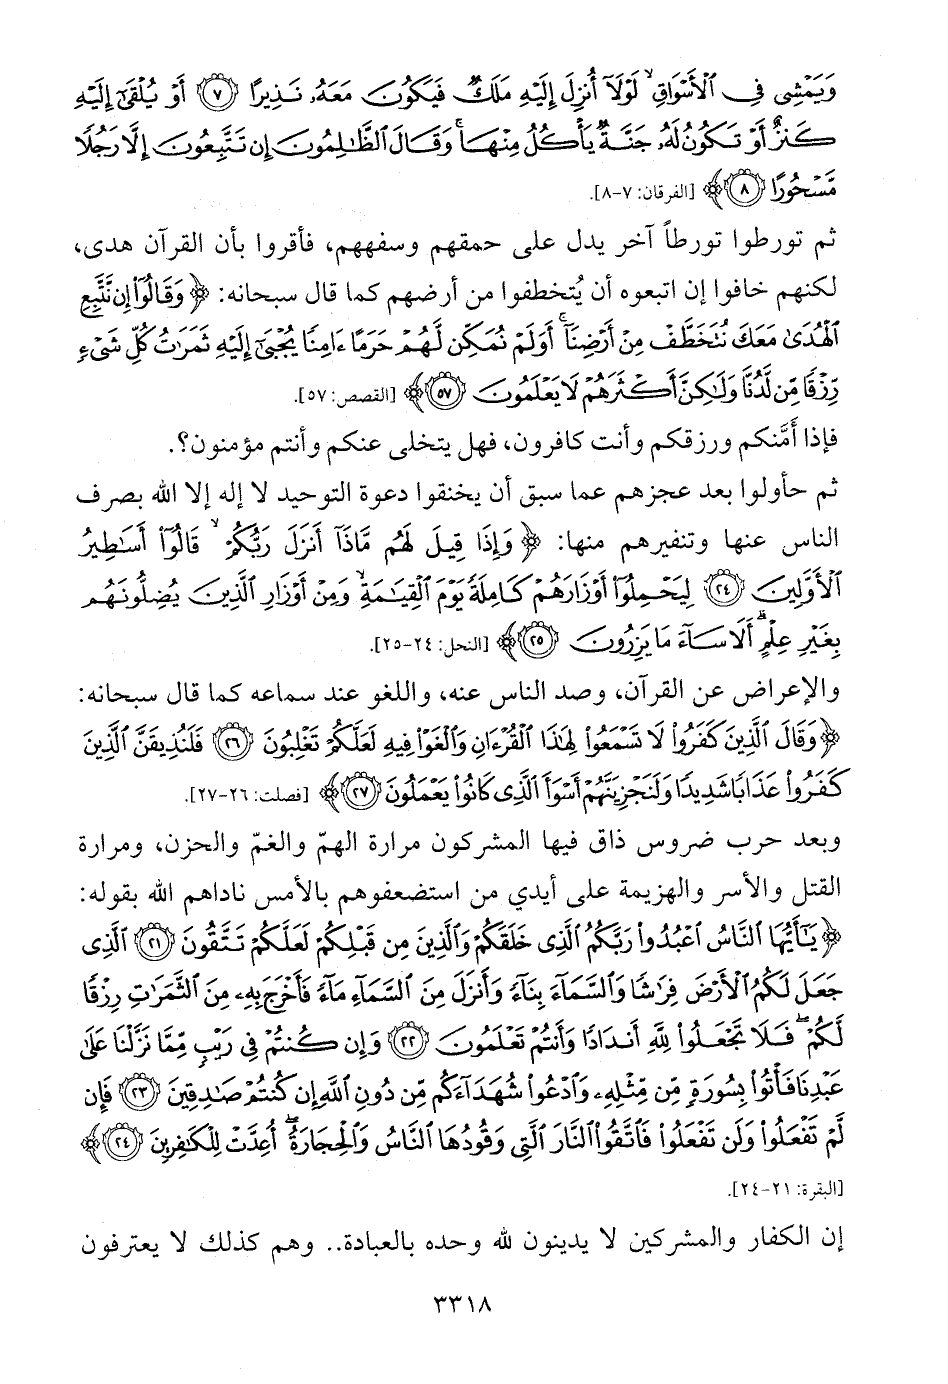 وَيَمْشِى فِى ٱلْأَسْوَاقِ ۙ لَوْلَآ أُنزِلَ إِلَيْهِ مَلَكٌ فَيَكُونَ مَعَهُۥ نَذِيرًا ٧ أَوْ يُلْقَىٰٓ إِلَيْهِ
كَنزٌ أَوْ تَكُونُ لَهُۥ جَنَّةٌ يَأْكُلُ مِنْهَا ۚ وَقَالَ ٱلظَّـٰلِمُونَ إِن تَتَّبِعُونَ إِلَّا رَجُلًا
مَّسْحُورًا ٨ ﴾ [الفرقان: ٧-٨].
ثم تورطوا تورطاً آخر يدل على حمقهم وسفههم، فأقروا بأن القرآن هدى،
لكنهم خافوا إن اتبعوه أن يُتخطفوا من أرضهم كما قال سبحانه: ﴿ وَقَالُوٓا۟ إِن نَّتَّبِعِ
ٱلْهُدَىٰ مَعَكَ نُتَخَطَّفْ مِنْ أَرْضِنَآ ۚ أَوَلَمْ نُمَكِّن لَّهُمْ حَرَمًا ءَامِنًا يُجْبَىٰٓ إِلَيْهِ ثَمَرَٰتُ كُلِّ شَىْءٍ
رِّزْقًا مِّن لَّدُنَّا وَلَـٰكِنَّ أَكْثَرَهُمْ لَا يَعْلَمُونَ ٥٧ ﴾ [القصص: ٥٧].
فإذا أَمَّنكم ورزقكم وأنت كافرون، فهل يتخلى عنكم وأنتم مؤمنون؟.
ثم حأولوا بعد عجزهم عما سبق أن يخنقوا دعوة التوحيد لا إله إلا الله بصرف
الناس عنها وتنفيرهم منها: ﴿ وَإِذَا قِيلَ لَهُم مَّاذَآ أَنزَلَ رَبُّكُمْ ۙ قَالُوٓا۟ أَسَـٰطِيرُ
ٱلْأَوَّلِينَ ٢٤ لِيَحْمِلُوٓا۟ أَوْزَارَهُمْ كَامِلَةً يَوْمَ ٱلْقِيَـٰمَةِ ۙ وَمِنْ أَوْزَارِ ٱلَّذِينَ يُضِلُّونَهُم
بِغَيْرِ عِلْمٍ ۗ أَلَا سَآءَ مَا يَزِرُونَ ٢٥ ﴾ [النحل: ٢٤-٢٥].
والإعراض عن القرآن، وصد الناس عنه، واللغو عند سماعه كما قال سبحانه:
﴿ وَقَالَ ٱلَّذِينَ كَفَرُوا۟ لَا تَسْمَعُوا۟ لِهَـٰذَا ٱلْقُرْءَانِ وَٱلْغَوْا۟ فِيهِ لَعَلَّكُمْ تَغْلِبُونَ ٢٦ فَلَنُذِيقَنَّ ٱلَّذِينَ
كَفَرُوا۟ عَذَابًا شَدِيدًا وَلَنَجْزِيَنَّهُمْ أَسْوَأَ ٱلَّذِى كَانُوا۟ يَعْمَلُونَ ٢٧ ﴾ [فصلت: ٢٦-٢٧].
وبعد حرب ضروس ذاق فيها المشركون مرارة الهمّ والغمّ والحزن، ومرارة
القتل والأسر والهزيمة على أيدي من استضعفوهم بالأمس ناداهم الله بقوله:
﴿ يَـٰٓأَيُّهَا ٱلنَّاسُ ٱعْبُدُوا۟ رَبَّكُمُ ٱلَّذِى خَلَقَكُمْ وَٱلَّذِينَ مِن قَبْلِكُمْ لَعَلَّكُمْ تَتَّقُونَ ٢١ ٱلَّذِى
جَعَلَ لَكُمُ ٱلْأَرْضَ فِرَٰشًا وَٱلسَّمَآءَ بِنَآءً وَأَنزَلَ مِنَ ٱلسَّمَآءِ مَآءً فَأَخْرَجَ بِهِۦ مِنَ ٱلثَّمَرَٰتِ رِزْقًا
لَّكُمْ ۖ فَلَا تَجْعَلُوا۟ لِلَّهِ أَندَادًا وَأَنتُمْ تَعْلَمُونَ ٢٢ وَإِن كُنتُمْ فِى رَيْبٍ مِّمَّا نَزَّلْنَا عَلَىٰ
عَبْدِنَا فَأْتُوا۟ بِسُورَةٍ مِّن مِّثْلِهِۦ وَٱدْعُوا۟ شُهَدَآءَكُم مِّن دُونِ ٱللَّهِ إِن كُنتُمْ صَـٰدِقِينَ ٢٣ فَإِن
لَّمْ تَفْعَلُوا۟ وَلَن تَفْعَلُوا۟ فَٱتَّقُوا۟ ٱلنَّارَ ٱلَّتِى وَقُودُهَا ٱلنَّاسُ وَٱلْحِجَارَةُ ۖ أُعِدَّتْ لِلْكَـٰفِرِينَ ٢٤ ﴾
[البقرة: ٢١-٢٤].
إن الكفار والمشركين لا يدينون لله وحده بالعبادة.. وهم كذلك لا يعترفون
٣٣١٨